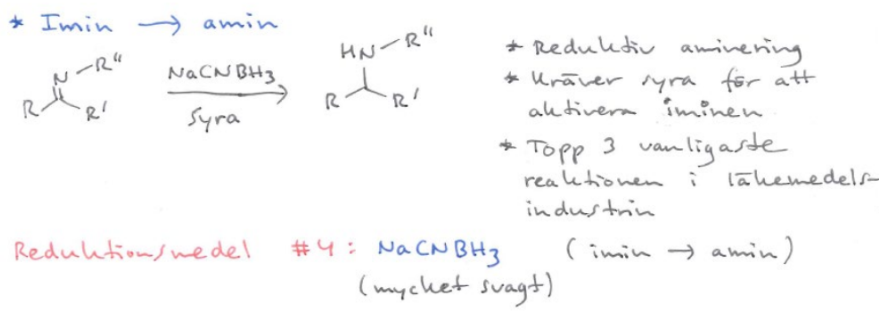 * Imin → amin
N-R"
R
R'
NaCNBH3
Syra
HN-R"
R
R'
* Reduktiv aminering
* Kräver syra för att
aktivera iminen
* Topp 3 vanligaste
reaktionen i läkemedels-
industrin
Reduktionsmedel #4: NaCNBH3 (imin → amin)
(mycket svagt)